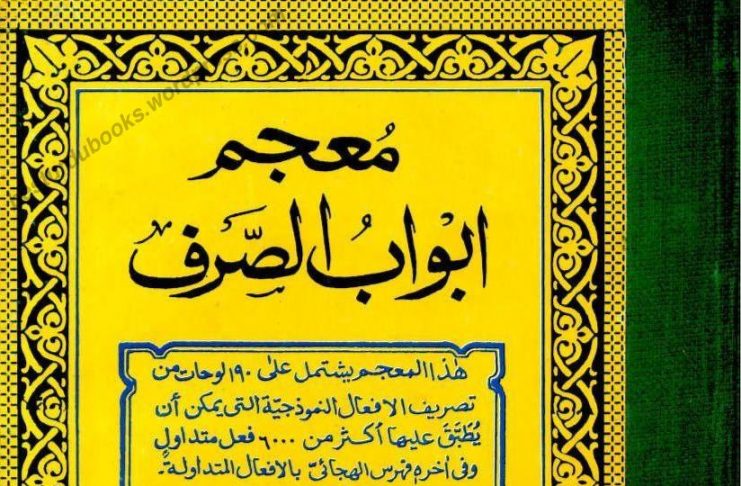 مُعجم
ابْوابُ الصَّرف
هٰذا المعجم يشتمل على ١٩٠ لوحات من
تصريف الافعال النموذجيّة التى يمكن أن
يُطَبَّقَ عليها أكثر من ٦٠٠٠ فعل متداولٍ
وفى اٰخره فهرس الهجائىّ بالافعال المتداولة۔